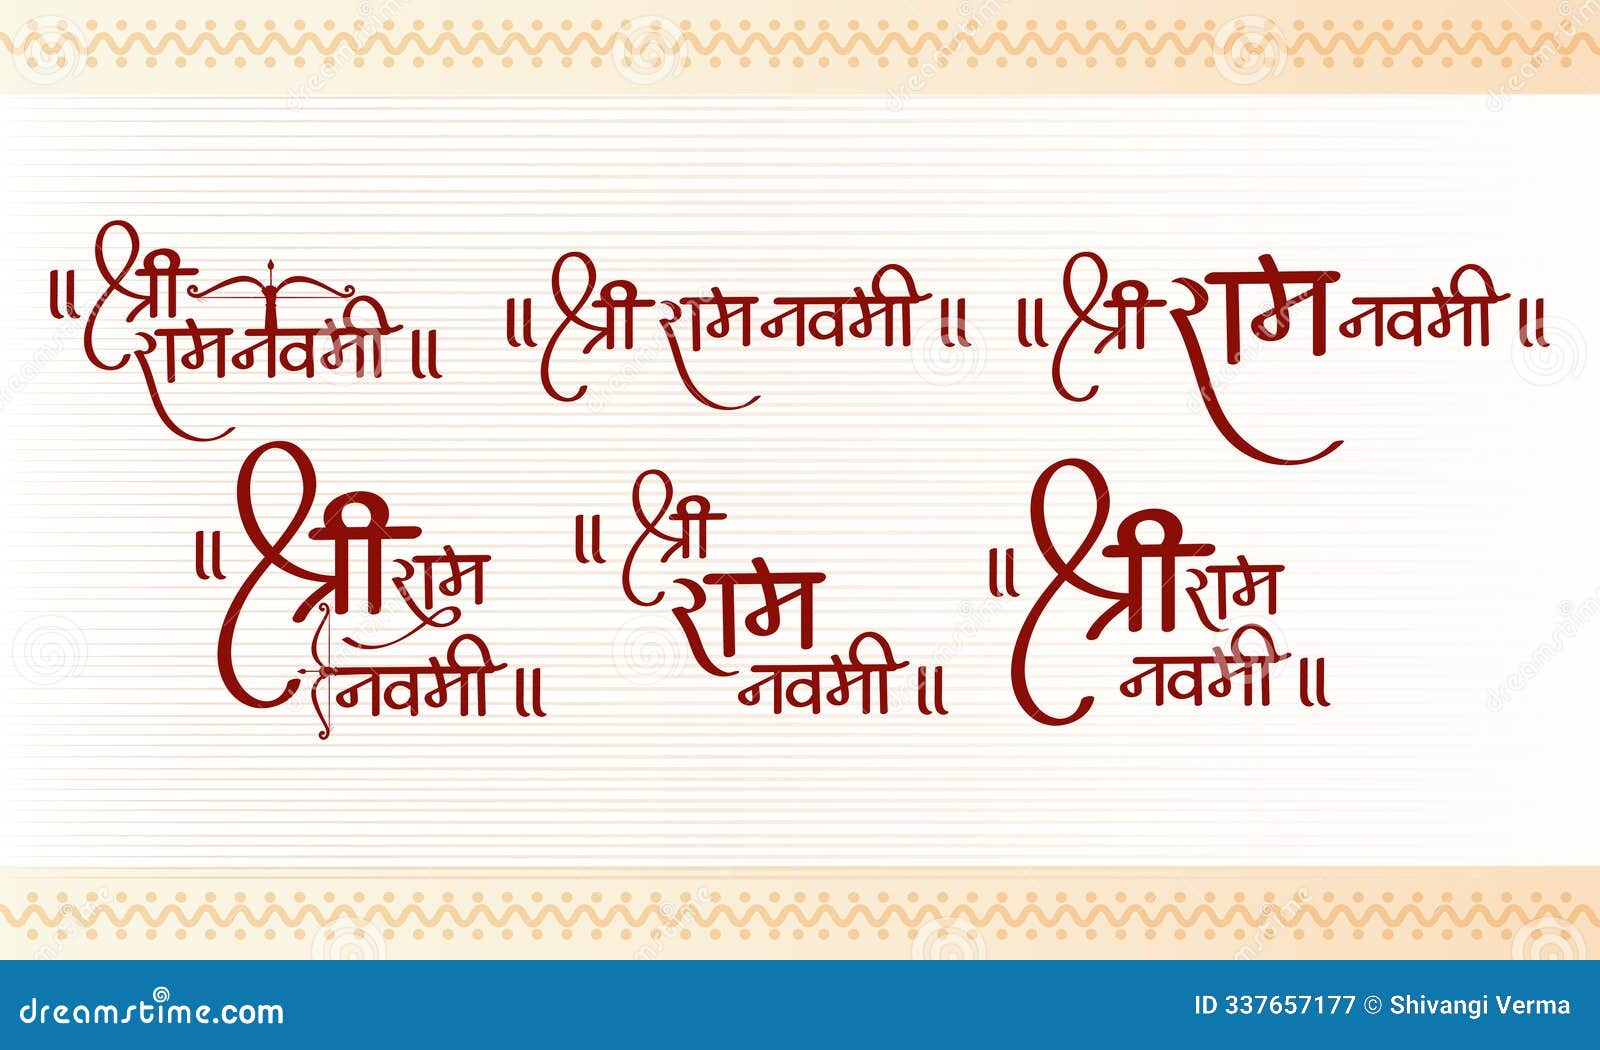 ॥ श्री
राम नवमी ॥
॥ श्री राम नवमी ॥
॥ श्री राम नवमी ॥
॥ श्री राम
नवमी ॥
॥ श्री
राम
नवमी ॥
॥ श्री राम
नवमी ॥
dreamstime.com
ID 337657177 © Shivangi Verma